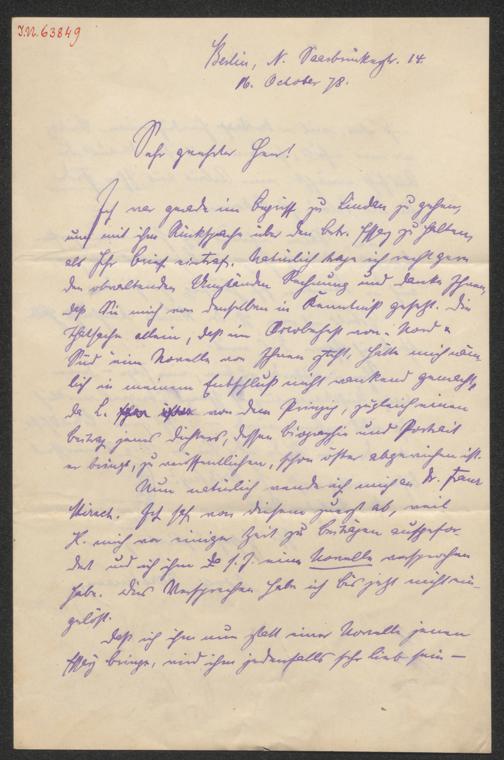 I.N. 63849
Berlin, N. Saarbrückerstr. 14.
16. October 78.
Sehr geehrter Herr!
Ich war gerade im Begriff zu Lindau zu gehen,
um mit ihm Rücksprache über den betr. Essay zu halten,
als Ihr Brief eintraf. Natürlich trage ich recht gern
den obwaltenden Umständen Rechnung und danke Ihnen,
daß Sie mich von denselben in Kenntniß gesetzt. Die
Thatsache allein, daß im Octoberheft von „Nord u
Süd" eine Novelle von Ihnen steht, hätte mich näm
lich in meinem Entschluß nicht wankend gemacht,
da L. von dem Prinzip, zugleich einen
Beitrag jenes Dichters, dessen Biographie und Portrait
er bringt, zu veröffentlichen, schon öfter abgewichen ist.
Nun natürlich wende ich mich an Dr. Franz
Hirsch. Ich sah von diesem zuerst ab, weil
H. mich vor einiger Zeit zu Beiträgen aufgefor
dert und ich ihm eine Novelle versprochen
habe. Dies Versprechen habe ich bis jetzt nicht ein
gelöst.
Daß ich ihm nun statt einer Novelle jenen
Essay bringe, wird ihm jedenfalls sehr lieb sein –